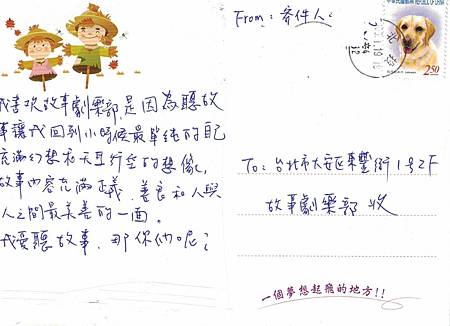 我喜歡故事劇樂部,是因為聽故
事讓我回到小時候最單純的自己
充滿幻想和天馬行空的想像,
故事內容充滿正義、善良和人與
人之間最美善的一面。
我愛聽故事,那你們呢?
From:寄件人:
中華民國郵票 REPUBLIC OF CHINA
2.50
To:台北市大安區東豐街1號2F
故事劇樂部 收
一個夢想起飛的地方!!